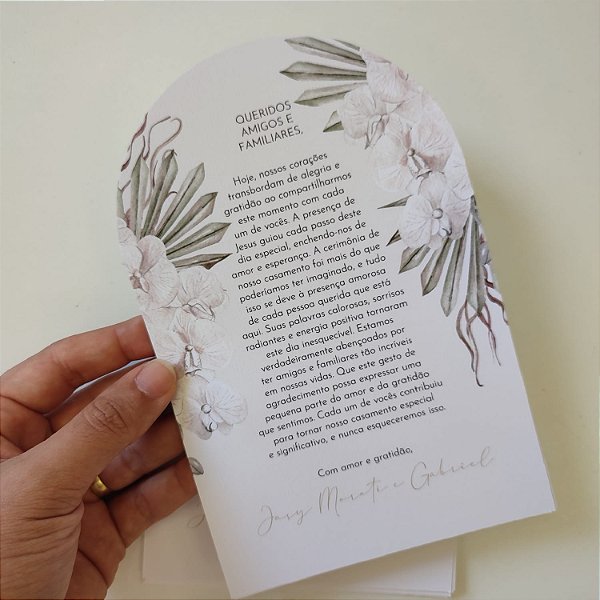 QUERIDOS
AMIGOS E
FAMILIARES,
Hoje, nossos corações
transbordam de alegria e
gratidão ao compartilharmos
este momento com cada
um de vocês. A presença de
Jesus guiou cada passo deste
dia especial, enchendo-nos de
amor e esperança. A cerimônia de
nosso casamento foi mais do que
poderíamos ter imaginado, e tudo
isso se deve à presença amorosa
de cada pessoa querida que está
aqui. Suas palavras calorosas, sorrisos
radiantes e energia positiva tornaram
este dia inesquecível. Estamos
verdadeiramente abençoados por
ter amigos e familiares tão incríveis
em nossas vidas. Que este gesto de
agradecimento possa expressar uma
pequena parte do amor e da gratidão
que sentimos. Cada um de vocês contribuiu
para tornar nosso casamento especial
e significativo, e nunca esqueceremos isso.
Com amor e gratidão,
e Gabriel